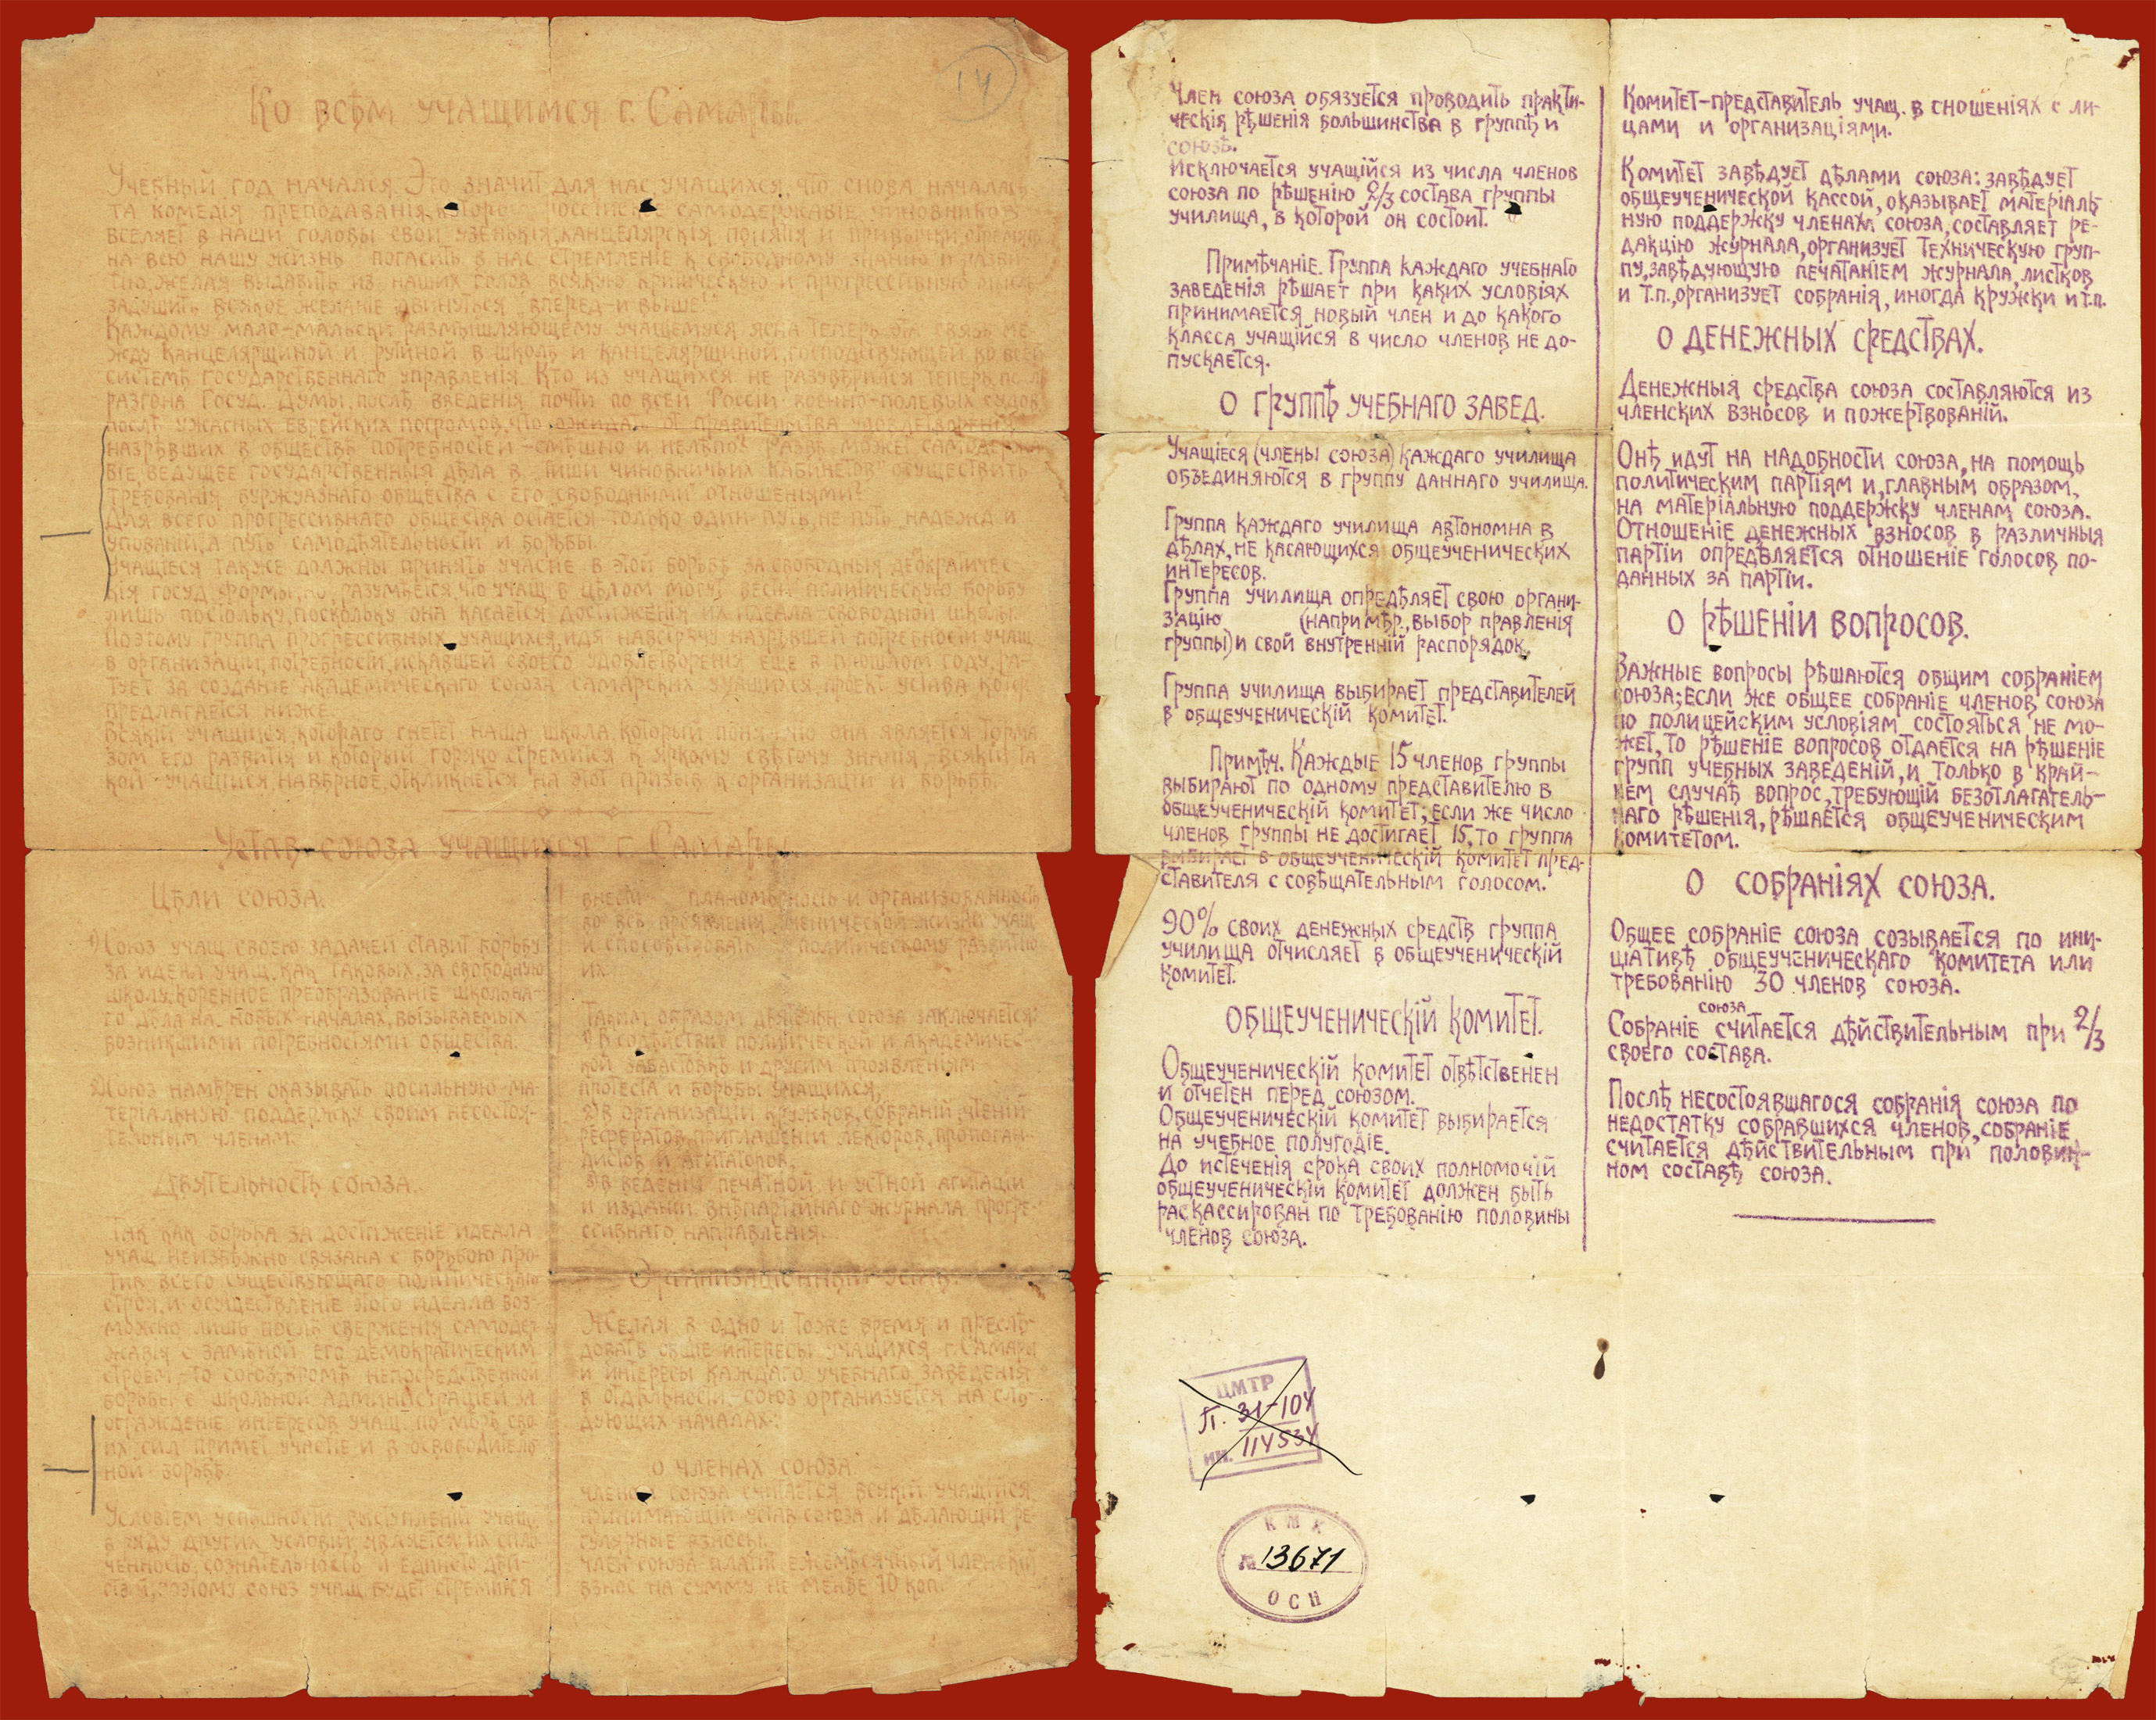 14
Ко всѣм учащимся г. Самары.
Учебный год начался. Это значит для нас, учащихся, что снова началась
та комедія преподаванія, самодержавіе чиновников
вселяет в наши головы свои узенькія, канцелярскія понятія и привычки, стремясь
на всю нашу жизнь погасить в нас стремленіе к свободному знанію и разви-
тію, желая выдавить из наших голов всякую критическую и прогрессивную мысль,
задушить всякое желаніе двинуться "вперед-и выше!"
Каждому мало-мальски размышляющему учащемуся ясна теперь эта связь ме-
жду канцелярщиной и рутиной в школѣ и канцелярщиной, господствующей ко всей
системѣ государственнаго управленія. Кто из учащихся не разувѣрился теперь, послѣ
разгона Госуд. Думы, послѣ введенія почти по всей Россіи военно-полевых судов,
послѣ ужасных еврейских погромов, что ожидать от правительства удовлетворенія
назрѣвших в обществѣ потребностей - смѣшно и нелѣпо? Развѣ может самодержа-
віе ведущее государственныя дѣла в "тиши чиновничьих кабинетов" осуществить
требованія буржуазнаго общества с его "свободными" отношеніями?
Для всего прогрессивнаго общества остается только один путь, не путь надежд и
упованій, а путь самодѣятельности и борьбы.
Учащіеся также должны принять участіе в этой борьбѣ за свободныя демократичес-
кія госуд. формы, но, разумѣется, что учащ. в цѣлом могут вести политическую борьбу
лишь постольку, поскольку она касается достиженія их идеала-свободной школы.
Поэтому группа прогрессивных учащихся, идя навстрѣчу назрѣвшей потребности учащ.
в организаціи, потребности, искавшей своего удовлетворенія еще в прошлом году, ра-
тует за созданіе академическаго союза самарских учащихся, проект устава котор.
предлагается ниже.
Всякій учащійся, котораго гнетет наша школа, который понял, что она является торма-
зом его развитія и который горячо стремится к яркому свѣточу знанія, всякій та-
кой учащійся, навѣрное, откликнется на этот призыв к организаціи и борьбѣ.
Устав союза учащихся г. Самары.
Цѣли союза.
1) Союз учащ. своею задачей ставит борьбу
за идеал учащ. как таковых, за свободную
школу, коренное преобразованіе школьна-
го дѣла на новых началах, вызываемых
возникшими потребностями общества.
2) Союз намѣрен оказывать посильную ма-
теріальную поддержку своим несостоя-
тельным членам.
Дѣятельность союза.
Так как борьба за достиженіе идеала
учащ. неизбѣжно связана с борьбою про-
тив всего существующаго политическаго
строя, и осуществленіе этого идеала воз-
можно лишь послѣ сверженія самодер-
жавія с замѣной его демократическим
строем, то союз, кромѣ непосредственной
борьбы с школьной администрацией за
огражденіе интересов учащ. по мѣрѣ сво-
их сил примет участіе и в освободитель-
ной борьбѣ.
Условіем успѣшности выступленій учащ.
в ряду других условій является их спло-
ченность, сознательность и единство дѣй-
ствій, поэтому союз учащ. будет стремиться
внести планомѣрность и организованность
во всѣ проявленія ученической жизни учащ.
и способствовать политическому развитію
их.
Таким образом дѣятельн. союза заключается:
1) В содѣйствіи политической и академичес-
кой забастовкѣ и другим проявленіям
протеста и борьбы учащихся,
2) в организаціи кружков, собраній, чтеній
рефератов, приглашеніи лекторов, пропоган-
дистов и агитаторов,
3) в веденіи печатной и устной агитаціи
и изданіи внѣпартійнаго журнала прогре-
ссивнаго направленія.
Организаціонный устав.
Желая в одно и тоже время и преслѣ-
довать общіе интересы учащихся г. Самары
и интересы каждаго учебнаго заведенія
в отдѣльности, союз организуется на слѣ-
дующих началах:
О членах союза
Членом союза считается всякій учащійся,
принимающій устав союза и дѣлающій ре-
гулярные взносы.
Член союза платит ежемѣсячный членскій
взнос на сумму не менѣе 10 коп.
Член союза обязуется проводить практи-
ческія рѣшенія большинства в группѣ и
союзѣ.
Исключается учащійся из числа членов
союза по рѣшенію 2/3 состава группы
училища, в которой он состоит.
Примѣчаніе. Группа каждаго учебнаго
заведенія рѣшает при каких условіях
принимается новый член и до какого
класса учащійся в число членов не до-
пускается.
О группѣ учебнаго завед.
Учащіеся (члены союза) каждаго училища
объединяются в группу даннаго училища.
Группа каждаго училища автономна в
дѣлах, не касающихся общеученических
интересов.
Группа училища опредѣляет свою органи-
зацію (напримѣр, выбор правленія
группы) и свой внутренній распорядок.
Группа училища выбирает представителей
в общеученическій комитет.
Примѣч. Каждые 15 членов группы
выбирают по одному представителю в
общеученическій комитет; если же число
членов группы не достигает 15, то группа
выбирает в общеученическій комитет пред-
ставителя с совѣщательным голосом.
90% своих денежных средств группа
училища отчисляет в общеученическій
комитет.
Общеученическій комитет.
Общеученическій комитет отвѣтственен
и отчетен перед союзом.
Общеученическій комитет выбирается
на учебное полугодіе.
До истеченія срока своих полномочій
общеученическій комитет должен быть
раскассирован по требованію половины
членов союза.
ЦМТР
П. 31-104
ин. 114534
КМК
№ 13671
ОСП
Комитет-представитель учащ. в сношеніях с ли-
цами и организаціями.
Комитет завѣдует дѣлами союза: завѣдует
общеученической кассой, оказывает матеріаль-
ную поддержку членам союза, составляет ре-
дакцію журнала, организует техническую груп-
пу, завѣдующую печатаніем журнала, листков
и т.п., организует собранія, иногда кружки и т.п.
О денежных средствах.
Денежныя средства союза составляются из
членских взносов и пожертвованій.
Онѣ идут на надобности союза, на помощь
политическим партіям и, главным образом,
на матеріальную поддержку членам союза.
Отношеніе денежных взносов в различныя
партіи опредѣляется отношеніе голосов по-
данных за партіи.
О рѣшеніи вопросов.
Важные вопросы рѣшаются общим собраніем
союза; если же общее собраніе членов союза
по полицейским условіям состояться не мо-
жет, то рѣшеніе вопросов отдается на рѣшеніе
групп учебных заведеній, и только в край-
нем случаѣ вопрос, требующій безотлагатель-
наго рѣшенія, рѣшается общеученическим
комитетом.
О собраніях союза.
Общее собраніе союза созывается по ини-
ціативѣ общеученическаго комитета или
требованію 30 членов союза.
союза
Собраніе считается дѣйствительным при 2/3
своего состава.
Послѣ несостоявшагося собранія союза по
недостатку собравшихся членов, собраніе
считается дѣйствительным при половин-
ном составѣ союза.